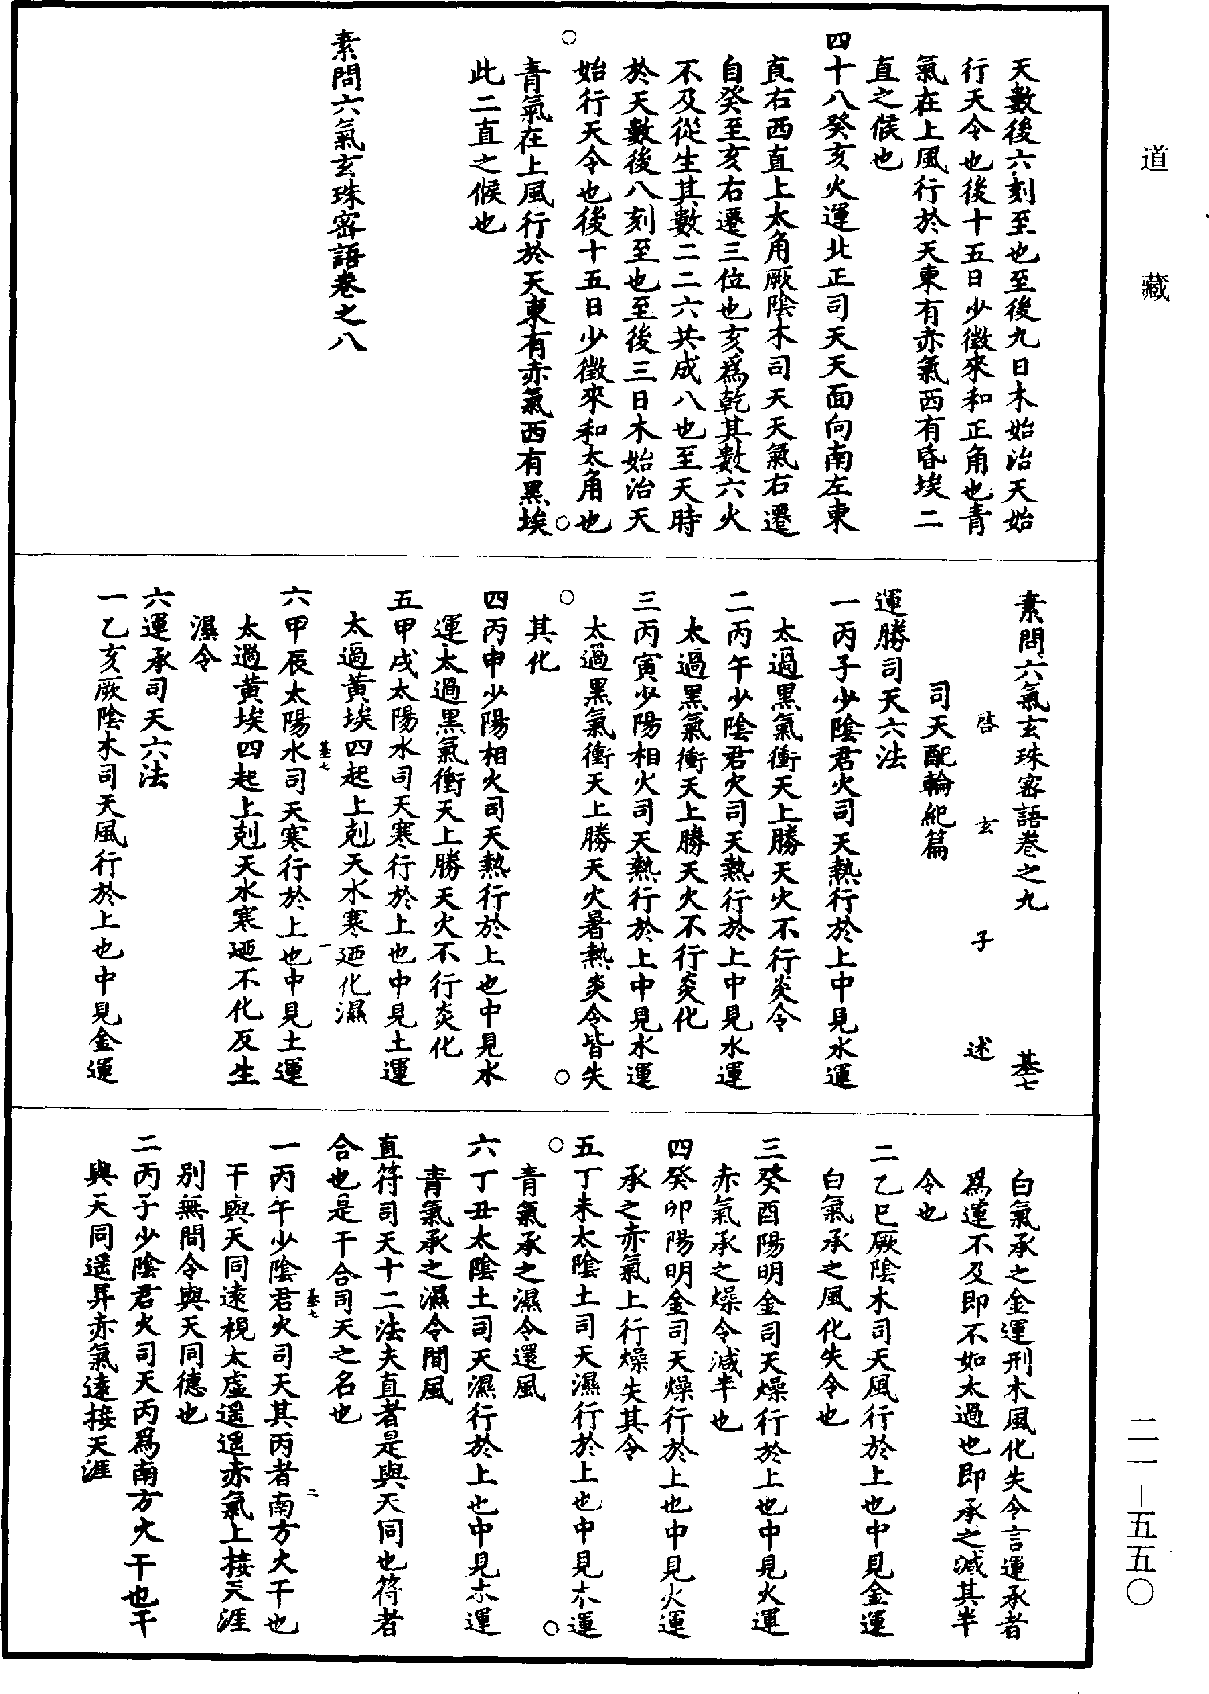 道藏
天數後六刻至也至後九日木始治天始
行天令也後十五日少徵來和正角也青
氣在上風行於天東有赤氣西有昏埃二
直之候也
四十八癸亥火運北正司天天面向南左東
直右西直上太角厥陰木司天天氣右遷
自癸至亥右遷三位也亥爲乾其數六火
不及從生其數二二六共成八也至天時
於天數後八刻至也至後三日木始治天
始行天令也後十五日少徵來和太角也
青氣在上風行於天東有赤氣西有黑埃
此二直之候也
素問六氣玄珠密語卷之八
素問六氣玄珠密語卷之九 基七
啓玄子述
司天配輪紀篇
運勝司天六法
一丙子少陰君火司天熱行於上中見水運
太過黑氣衝天上勝天火不行炎令
二丙午少陰君火司天熱行於上中見水運
太過黑氣衝天上勝天火不行炎化
三丙寅少陽相火司天熱行於上中見水運
太過黑氣衝天上勝天火暑熱炎令皆失
其化
四丙申少陽相火司天熱行於上也中見水
運太過黑氣衝天上勝天火不行炎化
五甲戌太陽水司天寒行於上也中見土運
太過黃埃四起上剋天水寒迺化濕
基七 一
六甲辰太陽水司天寒行於上也中見土運
太過黃埃四起上剋天水寒迺不化反生
濕令
六運承司天六法
一乙亥厥陰木司天風行於上也中見金運
白氣承之金運刑木風化失令言運承者
爲運不及即不如太過也即承之減其半
令也
二乙巳厥陰木司天風行於上也中見金運
白氣承之風化失令也
三癸酉陽明金司天燥行於上也中見火運
赤氣承之燥令減半也
四癸卯陽明金司天燥行於上也中見火運
承之赤氣上行燥失其令
五丁未太陰土司天濕行於上也中見木運
青氣承之濕令還風
六丁丑太陰土司天濕行於上也中見木運
青氣承之濕令間風
直符司天十二法夫直者是與天同也符者
合也是干合司天之名也
基七 二
一丙午少陰君火司天其丙者南方火干也
干與天同遠視太虛遥遥赤氣上接天涯
別無間令與天同德也
二丙子少陰君火司天丙爲南方火干也干
與天同遥昇赤氣遠接天涯
二一—五五〇